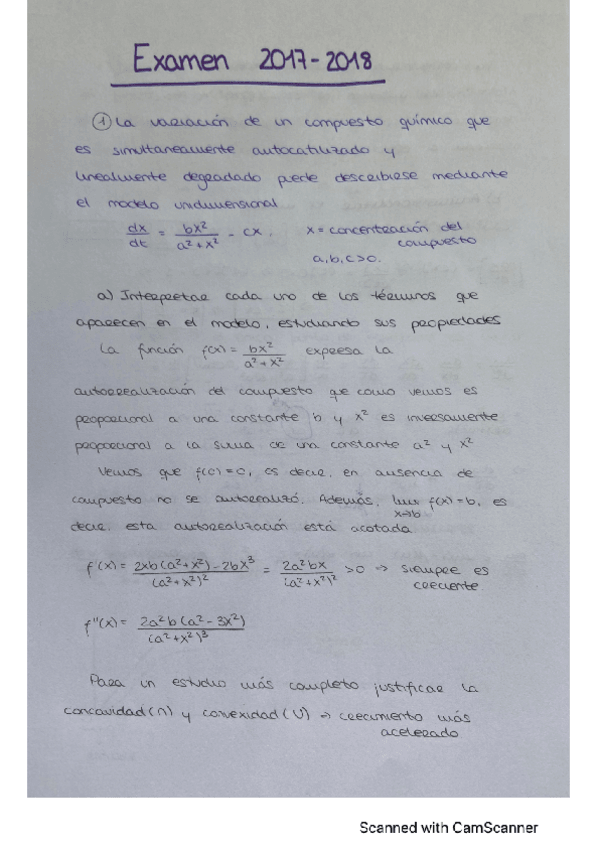 Examen 2017-2018
① La variación de un compuesto químico que
es simultaneamente autocatilizado y
linealmente degradado puede describirse mediante
el modelo unidimensional
dx/dt = bx²/(a²+x²) - cx. x = concentración del
compuesto
a,b,c>0.
a) Interpretar cada uno de los términos que
aparecen en el modelo, estudiando sus propiedades
La función f(x) = bx²/(a²+x²) expresa la
autorrealización del compuesto que como vemos es
proporcional a una constante b y x² es inversamente
proporcional a la suma de una constante a² y x²
Vemos que f(0)=0, es decir, en ausencia de
compuesto no se autorealizó. Además, lim x→b f(x)=b, es
decir, esta autorealización está acotada
f'(x) = (2xb(a²+x²)-2bx³)/(a²+x²)² = 2a²bx/(a²+x²)² >0 ⇒ siempre es
creciente.
f''(x) = 2a²b(a²-3x²)/(a²+x²)³
Para un estudio más completo justificar la
concavidad (∩) y convexidad (∪) ⇒ crecimiento más
acelerado
Scanned with CamScanner